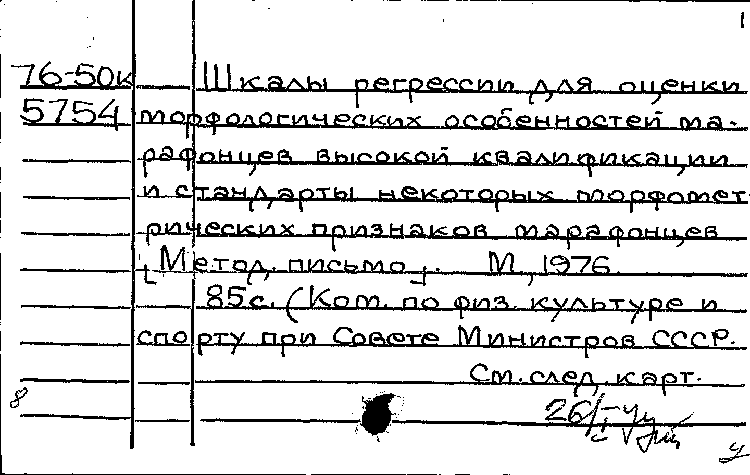 1
76-50к Шкалы регрессии для оценки
5754 морфологических особенностей ма-
рафонцев высокой квалификации
и стандарты некоторых морфомет
рических признаков марафонцев
[Метод. письмо]. М., 1976.
85с. (Ком. по физ. культуре и
спорту при Совете Министров СССР.
См. след. карт.
8 26/I
у